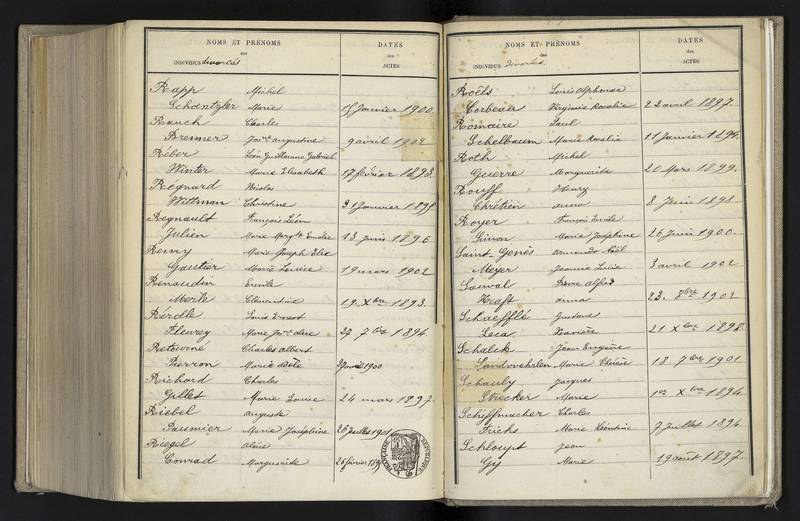 NOMS ET PRÉNOMS
des
INDIVIDUS divorcés
DATES
des
ACTES
Rapp Michel
Schantzler Marie 15 Janvier 1900
Rauch Charles
Brenner augustine 9 avril 1902
Réber Léon Guillaume Gabriel
Winter Marie Elisabeth 17 février 1893
Régnard Nicolas
Wittman Christine 31 Janvier 1895
Regnault François Léon
Julien Marie Margte Emilie 13 Juin 1896
Remy Marie Joseph Elie
Gautier Marie Louise 19 mars 1902
Renaudin Emile
Merle Clémentine 19 Xbre 1893
Louis Ernest
Fleurey Marie 27 7bre 1894
Retourné Charles albert
Pierron Marie adèle 1900
Richard Charles
Gillet Marie Louise 24 mars 1897
Riebel auguste
Paumier Marie Joséphine 26 Juillet 1901
Riegel
Conrad Marguerite 26 février
NOMS ET PRÉNOMS
des
INDIVIDUS divorcés
DATES
des
ACTES
Roëls Louis Alphonse
Corbeau Virginie Rosalie 22 avril 1897
Romaire Paul
Schelbaum Marie Rosalie 11 Janvier
Roth Michel
Guerre Marguerite 20 Mars 1899
Rouff Henry
Chrétien anna 8 Juin 1898
Royer François Emile
Marie Joséphine 26 Juin 1900
Saint Genès
Meyer Jeanne Lucie 3 avril 1902
Sauval Pierre alfred
Kraft anna 23 8bre 1902
Schaefflé Gustave
Leca Xavière 21 Xbre 1898
Schalck Jean Eugène
Marie Thérèse 18 7bre 1901
Schauly Jacques
Strecker Marie 1er Xbre 1894
Schiffmacher Charles
Frichs Marie Léontine 7 Juillet 1896
Schloupt Jean
Gy Marie 19 août 1897